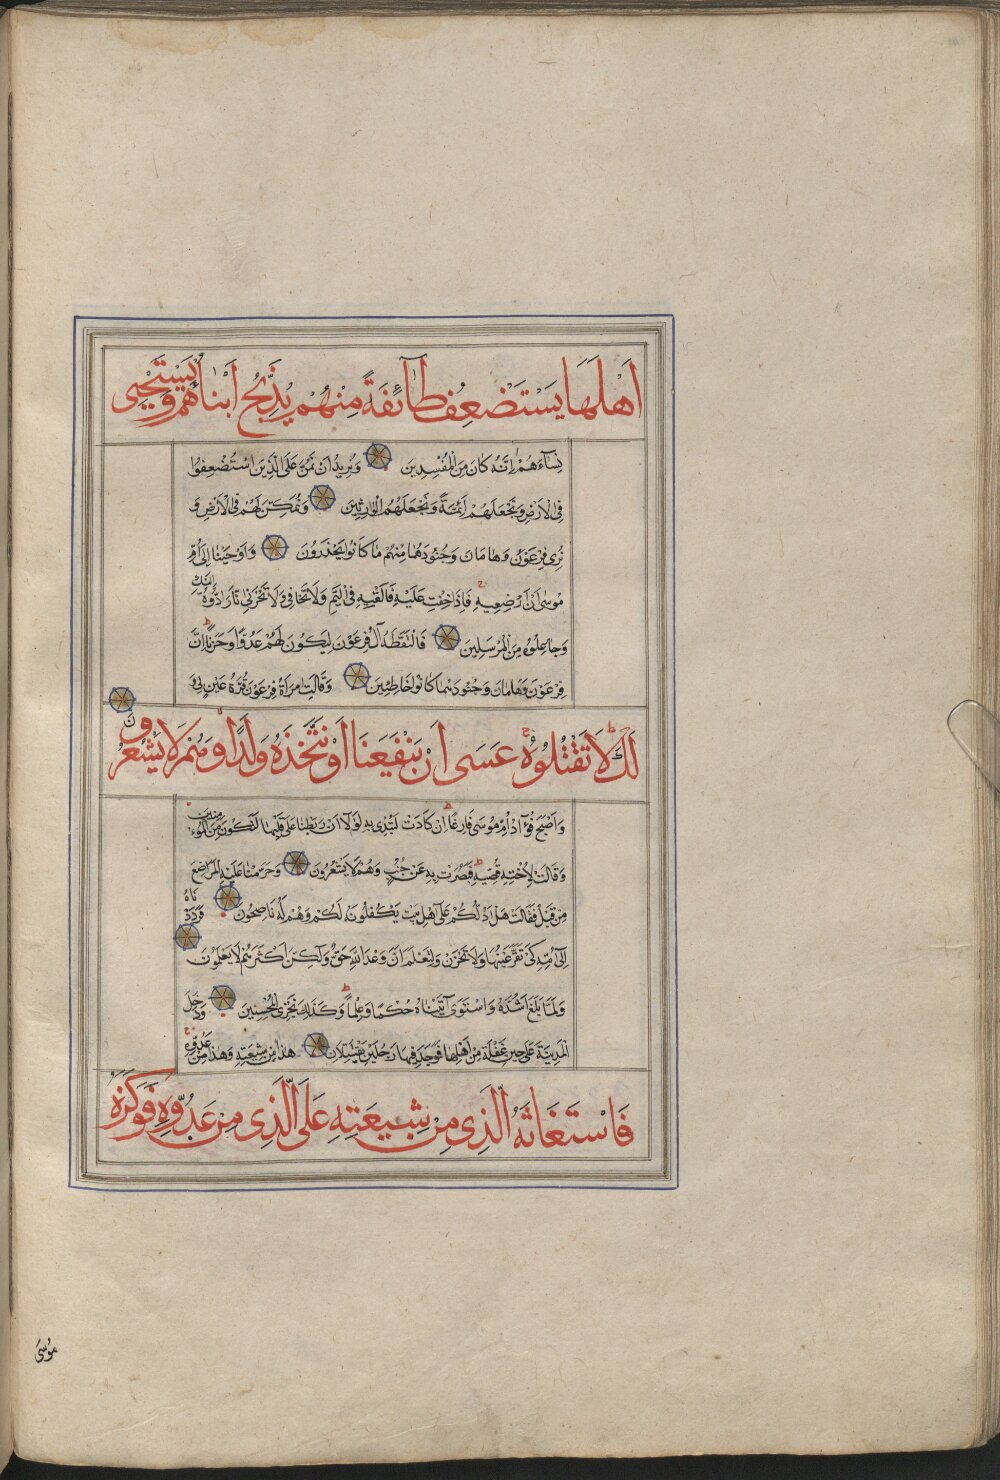 اَهْلَهَا يَسْتَضْعِفُ طَآئِفَةً مِنْهُمْ يُذَبِّحُ اَبْنَآءَهُمْ وَيَسْتَحْيِى
نِسَآءَهُمْ اِنَّهُ كَانَ مِنَ الْمُفْسِدِينَ وَنُرِيدُ اَنْ نَمُنَّ عَلَى الَّذِينَ اسْتُضْعِفُوا
فِى الْاَرْضِ وَنَجْعَلَهُمْ اَئِمَّةً وَنَجْعَلَهُمُ الْوَارِثِينَ وَنُمَكِّنَ لَهُمْ فِى الْاَرْضِ وَ
نُرِىَ فِرْعَوْنَ وَهَامَانَ وَجُنُودَهُمَا مِنْهُمْ مَا كَانُوا يَحْذَرُونَ وَاَوْحَيْنَا اِلَى اُمِّ
مُوسَى اَنْ اَرْضِعِيهِ فَاِذَا خِفْتِ عَلَيْهِ فَاَلْقِيهِ فِى الْيَمِّ وَلَا تَخَافِى وَلَا تَحْزَنِى اِنَّا رَادُّوهُ اِلَيْكِ
وَجَاعِلُوهُ مِنَ الْمُرْسَلِينَ فَالْتَقَطَهُ آلُ فِرْعَوْنَ لِيَكُونَ لَهُمْ عَدُوًّا وَحَزَنًا اِنَّ
فِرْعَوْنَ وَهَامَانَ وَجُنُودَهُمَا كَانُوا خَاطِئِينَ وَقَالَتِ امْرَاَةُ فِرْعَوْنَ قُرَّةُ عَيْنٍ لِى وَ
لَكَ لَا تَقْتُلُوهُ عَسَى اَنْ يَنْفَعَنَا اَوْ نَتَّخِذَهُ وَلَدًا وَهُمْ لَا يَشْعُرُونَ
وَاَصْبَحَ فُؤَادُ اُمِّ مُوسَى فَارِغًا اِنْ كَادَتْ لَتُبْدِى بِهِ لَوْلَا اَنْ رَبَطْنَا عَلَى قَلْبِهَا لِتَكُونَ مِنَ الْمُؤْمِنِينَ
وَقَالَتْ لِاُخْتِهِ قُصِّيهِ فَبَصُرَتْ بِهِ عَنْ جُنُبٍ وَهُمْ لَا يَشْعُرُونَ وَحَرَّمْنَا عَلَيْهِ الْمَرَاضِعَ
مِنْ قَبْلُ فَقَالَتْ هَلْ اَدُلُّكُمْ عَلَى اَهْلِ بَيْتٍ يَكْفُلُونَهُ لَكُمْ وَهُمْ لَهُ نَاصِحُونَ فَرَدَدْنَاهُ
اِلَى اُمِّهِ كَىْ تَقَرَّ عَيْنُهَا وَلَا تَحْزَنَ وَلِتَعْلَمَ اَنَّ وَعْدَ اللّٰهِ حَقٌّ وَلَكِنَّ اَكْثَرَهُمْ لَا يَعْلَمُونَ
وَلَمَّا بَلَغَ اَشُدَّهُ وَاسْتَوَى آتَيْنَاهُ حُكْمًا وَعِلْمًا وَكَذَلِكَ نَجْزِى الْمُحْسِنِينَ وَدَخَلَ
الْمَدِينَةَ عَلَى حِينِ غَفْلَةٍ مِنْ اَهْلِهَا فَوَجَدَ فِيهَا رَجُلَيْنِ يَقْتَتِلَانِ هَذَا مِنْ شِيعَتِهِ وَهَذَا مِنْ عَدُوِّهِ
فَاسْتَغَاثَهُ الَّذِى مِنْ شِيعَتِهِ عَلَى الَّذِى مِنْ عَدُوِّهِ فَوَكَزَهُ
مُوسَى